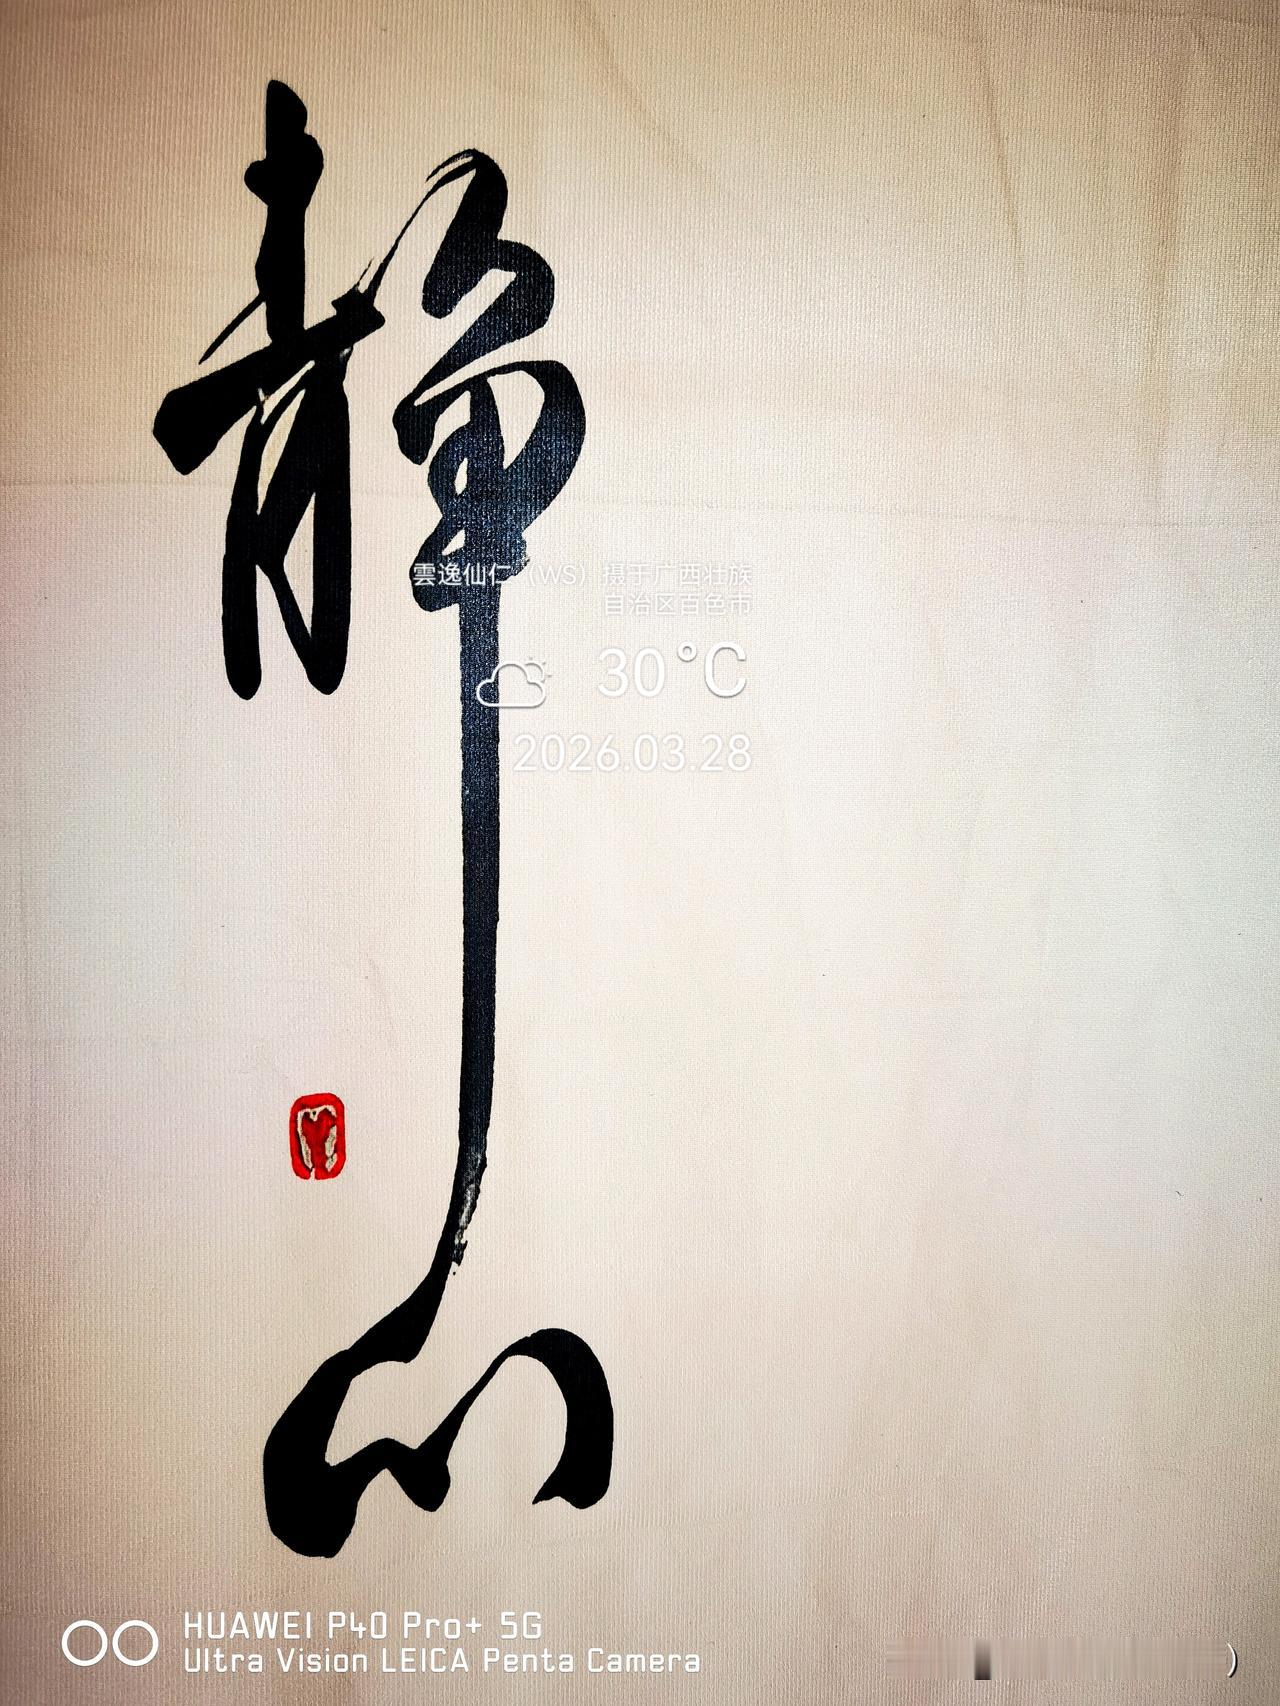 静心
雲逸仙仁（WS）摄于广西壮族
自治区百色市
30°C
2026.03.28
HUAWEI P40 Pro+ 5G
Ultra Vision LEICA Penta Camera